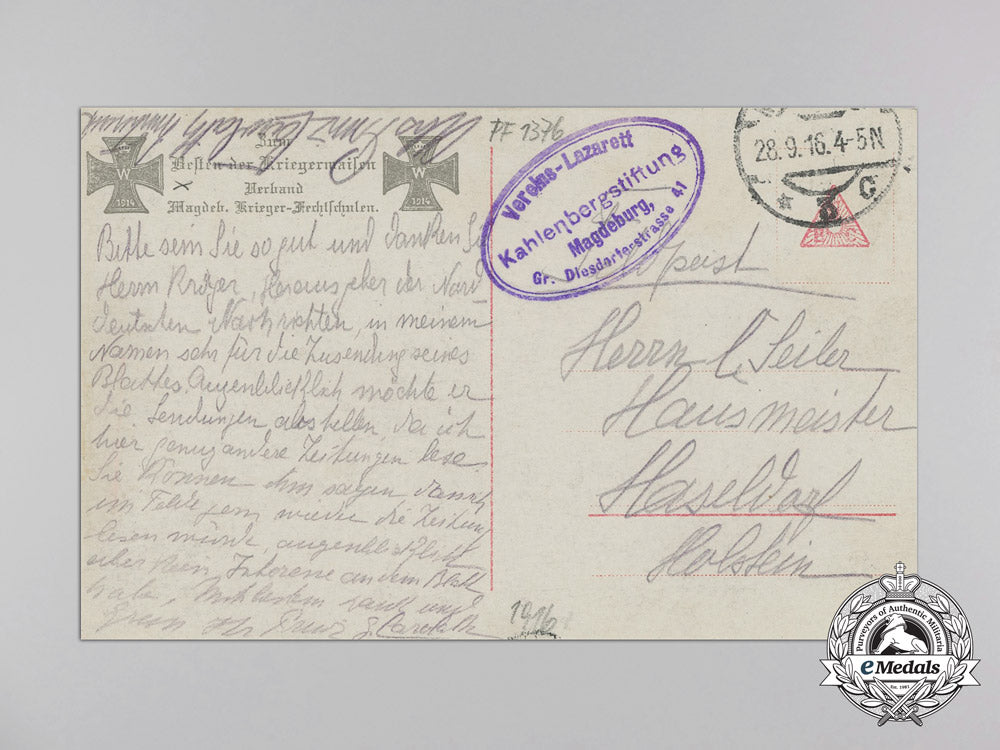 PF 1376
Zum
Besten der Kriegerwaisen
Verband
Magdeb. Krieger-Fechtschulen.
W
1914
W
1914
Bitte sein Sie so gut und danken Sie
Herrn Kröger, Herausgeber der Nord
deutschen Nachrichten, in meinem
Namen sehr für die Zusendung seines
Blattes. Augenblicklich möchte er
die Sendungen abstellen, da ich
hier genug andere Zeitungen lese
Sie können ihm sagen, dass ich
im Felde gern wieder die Zeitung
lesen würde, augenblicklich
aber kein Interesse an dem Blatt
habe. Mit bestem Dank und
Gruss
Vereins-Lazarett
Kahlenbergstiftung
Magdeburg,
Gr. Diesdorferstrasse 41
28.9.16. 4-5N
* 3 C
Herrn C. Seiler
Hausmeister
Haseldorf
Holstein
1916
Purveyors of Authentic Militaria
eMedals
Est. 1985